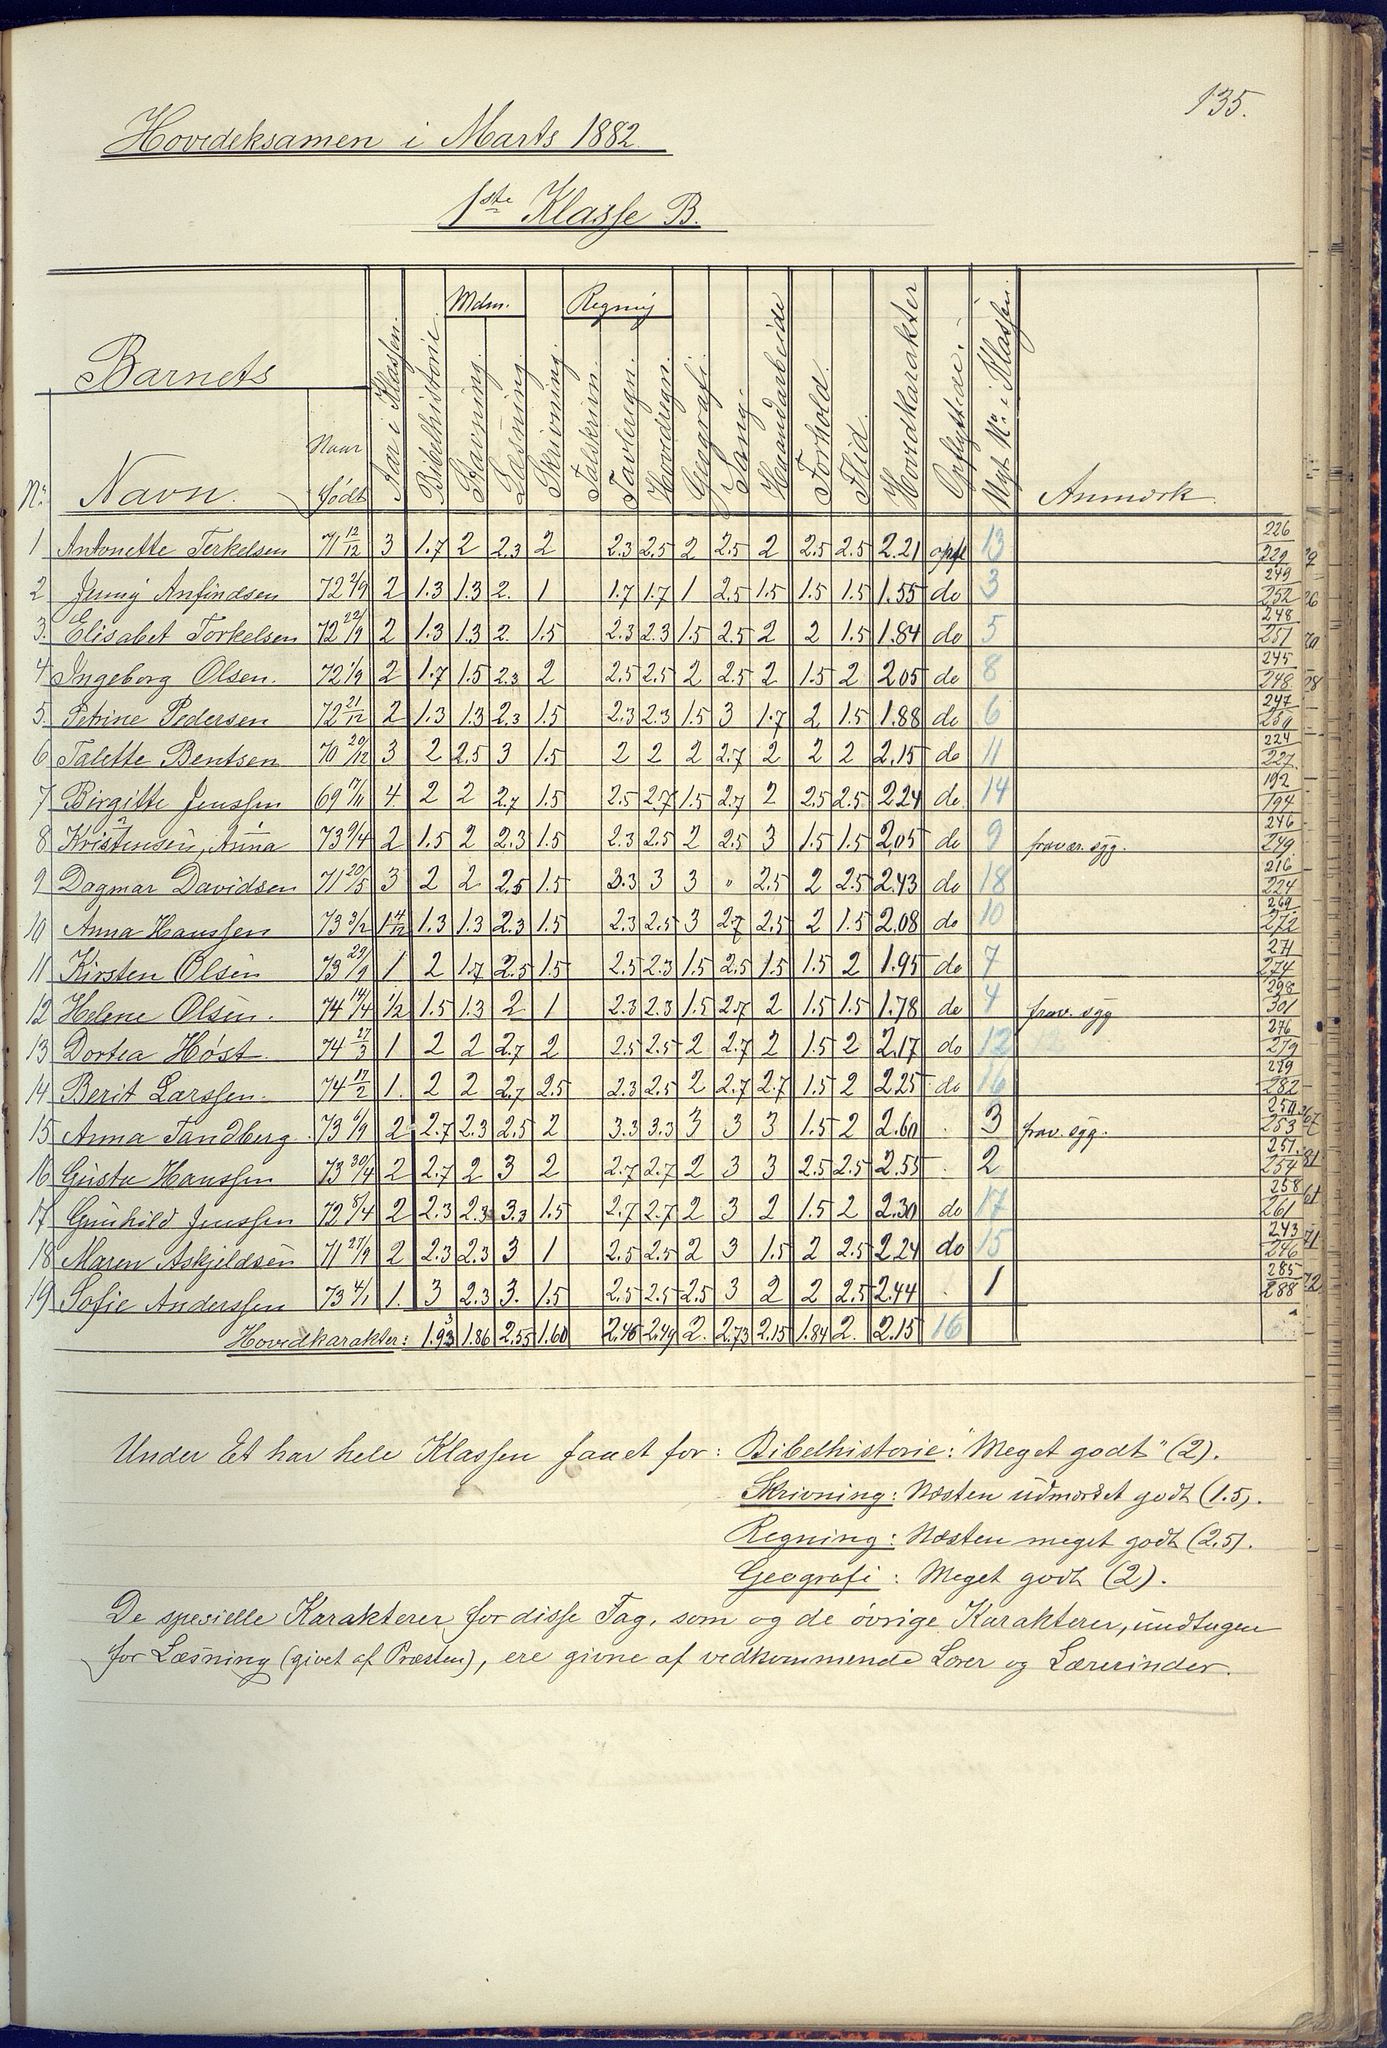 135.
Hovedeksamen i Marts 1882.
1ste Klasse B.
Barnets
Mdm. Regning
No. Navn. Naar født Aar i Klassen. Bibelhistorie. Stavning. Læsning. Skrivning. Talskrivn. Tavleregn. Hovedregn. Geografi. Sang. Haandarbeide Forhold. Flid. Hovedkarakter Opflyttede. Nyt No. i Klassen. Anmærk.
1 Antonette Terkelsen 71 12/12 3 1.7 2 2.3 2 2.3 2.5 2 2.5 2 2.5 2.5 2.21 opfl 13 226/229
2 Jenny Anfindsen 72 2/9 2 1.3 1.3 2. 1 1.7 1.7 1 2.5 1.5 1.5 1.5 1.55 do 3 249/252
3. Elisabet Torkelsen 72 22/9 2 1.3 1.3 2. 1.5 2.3 2.3 1.5 2.5 2 2 1.5 1.84 do 5 248/251
4 Ingeborg Olsen. 72 1/9 2 1.7 1.5 2.3 2 2.5 2.5 2 2.5 2 1.5 2 2.05 do 8 245/248
5. Petrine Pedersen 72 21/12 2 1.3 1.3 2.3 1.5 2.3 2.3 1.5 3 1.7 2 1.5 1.88 do 6 247
6 Talette Bentsen 70 20/12 3 2 2.5 3 1.5 2 2 2 2.7 2 2 2 2.15 do 11 224/227
7 Birgitte Jenssen 69 17/11 4. 2 2 2.7 1.5 2.5 2.7 1.5 2.7 2 2.5 2.5 2.24 do. 14 192/194
8 Kristensen, Anna 73 9/4 2 1.5 2 2.3 1.5 2.3 2.5 2 2.5 3 1.5 1.5 2.05 do 9 fravær. syg. 246/249
9 Dagmar Davidsen 71 20/5 3 2 2 2.5 1.5 3.3 3 3 " 2.5 2 2.5 2.43 do 18 216/224
10 Anna Hanssen 73 3/2 1 4/12 1.3 1.3 2.3 1.5 2.3 2.5 3 2.7 2.5 2 1.5 2.08 do 10 269/272
11 Kirsten Olsen 73 29/9 1 2 1.7 2.5 1.5 2.5 2.3 1.5 2.5 1.5 1.5 2 1.95 do 7 271/274
12 Helene Olsen. 74 14/4 1/2 1.5 1.3 2 1 2.3 2.3 1.5 2.7 2 1.5 1.5 1.78 do 4 frav. syg 298/301
13 Dortea Høst 74 27/3 1 2 2 2.7 2 2.5 2.5 2 2.7 2 1.5 2 2.17 do 12 276/279
14 Berit Larssen. 74 17/2 1. 2 2 2.7 2.5 2.3 2.5 2 2.7 2.7 1.5 2 2.25 do 16 279/282
15 Anna Tandberg. 73 6/9 2 2.7 2.3 2.5 2 3.3 3.3 3 3 3 1.5 2 2.60 . 3 frav. syg. 250/253
16 Gusta Hanssen 73 30/4 2 2.7 2 3 2 2.7 2.7 2 3 3 2.5 2.5 2.55 . 2 251/254
17 Gunhild Jenssen 72 5/4 2 2.3 2.3 3.3 1.5 2.7 2.7 2 3 2 1.5 2 2.30 do 17 258/261
18 Maren Askjeldsen 71 27/9 2 2.3 2.3 3 1 2.5 2.5 2 3 1.5 2 2.5 2.24 do 15 243/246
19 Sofie Anderssen 73 4/1 1. 3 2.3 3. 1.5 2.5 2.5 2.5 3 2 2 2.5 2.44 . 1 285/288
Hovedkarakter: 1.93 1.86 2.55 1.60 2.46 2.49 2. 2.73 2.15 1.84 2. 2.15 16
Under Et har hele Klassen faaet for: Bibelhistorie: "Meget godt" (2).
Skrivning: Næsten udmærket godt (1.5).
Regning: Næsten meget godt (2.5).
Geografi: Meget godt (2).
De spesielle Karakterer for disse Fag, som og de øvrige Karakterer, undtagen
for Læsning (givet af Præsten), ere givne af vedkommende Lærer og Lærerinder.